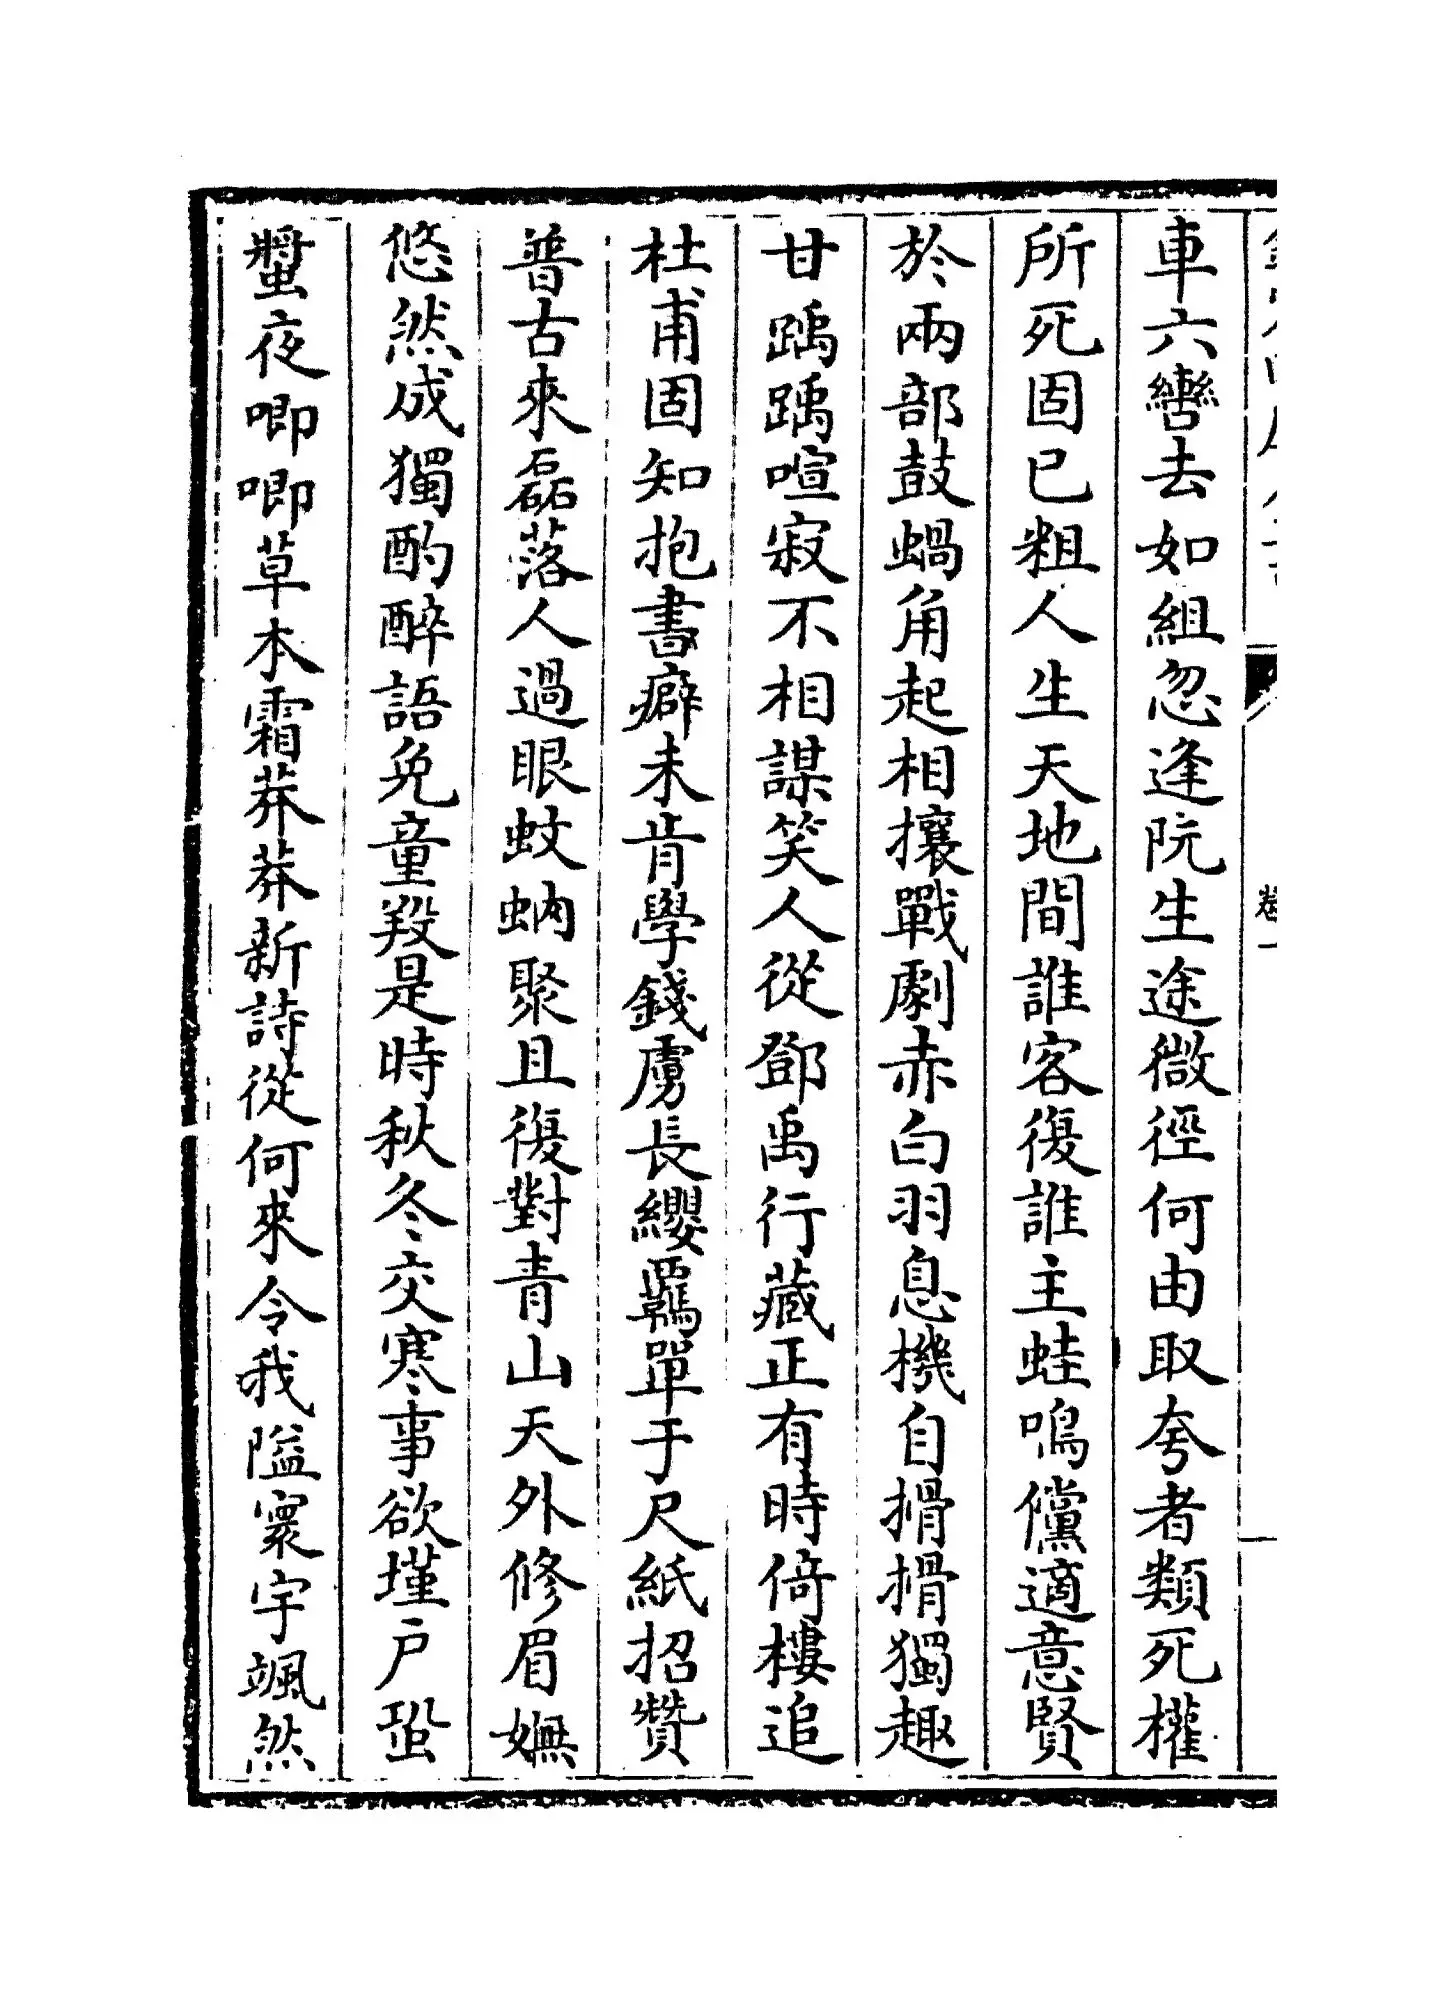 卷一
車六轡去如組忽逢阮生途微徑何由取夸者類死權
所死固已粗人生天地間誰客復誰主蛙鳴儻適意賢
於兩部鼓蝸角起相攘戰劇赤白羽息機自搰搰獨趣
甘踽踽喧寂不相謀笑人從鄧禹行藏正有時倚樓追
杜甫固知抱書癖未肯學錢虜長纓羈單于尺紙招贊
普古來磊落人過眼蚊蚋聚且復對青山天外修眉嫵
悠然成獨酌醉語免童羖是時秋冬交寒事欲墐戶蛩
螿夜唧唧草本霜莽莽新詩從何來令我隘寰宇颯然